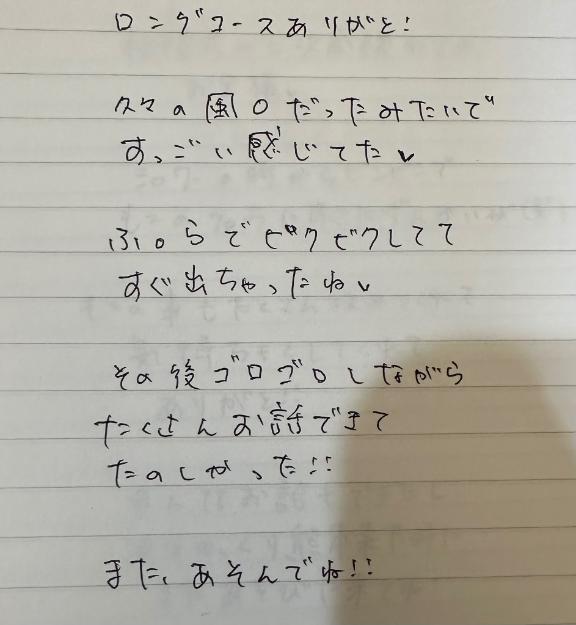 ロングコースありがと!
久々の風〇だったみたいで
すっごい感じてた✓
ふ〇らでビクビクしてて
すぐ出ちゃったね✓
その後ゴロゴロしながら
たくさんお話できて
たのしかった!!
また、あそんでね!!